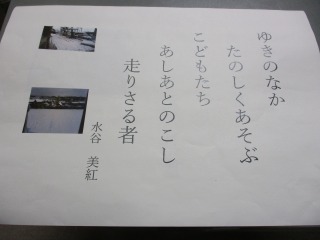 ゆきのなか
たのしくあそぶ
こどもたち
あしあとのこし
走りさる者
水谷 美紅